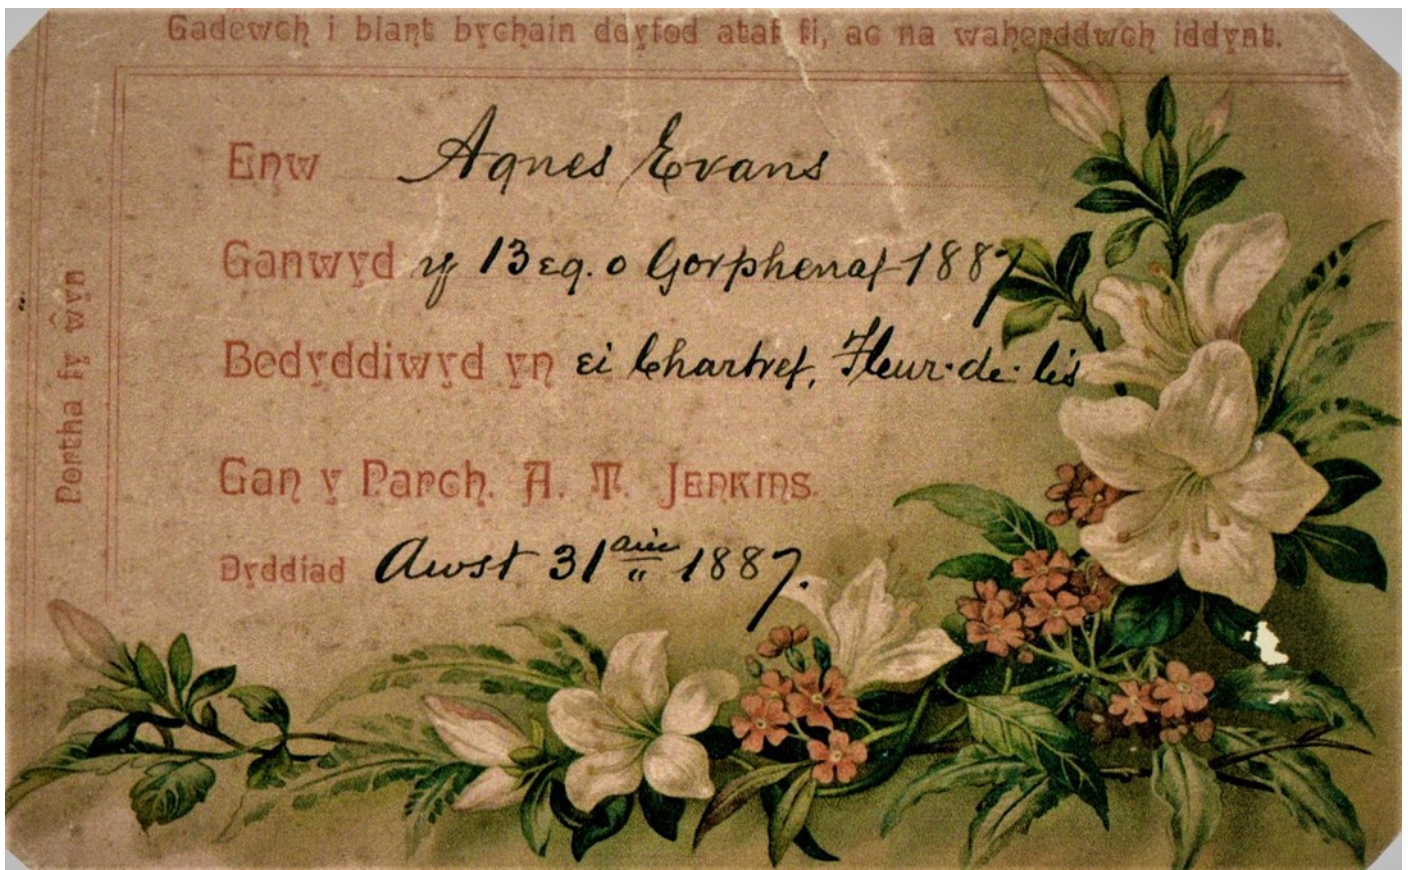 Gadewch i blant bychain ddyfod ataf fi, ac na waherddwch iddynt.
Portha fy ŵyn
Enw Agnes Evans
Ganwyd y 13eg. o Gorphenaf 1887
Bedyddiwyd yn ei Chartref, Fleur-de-lis
Gan y Parch. A. T. Jenkins.
Dyddiad Awst 31ain 1887.